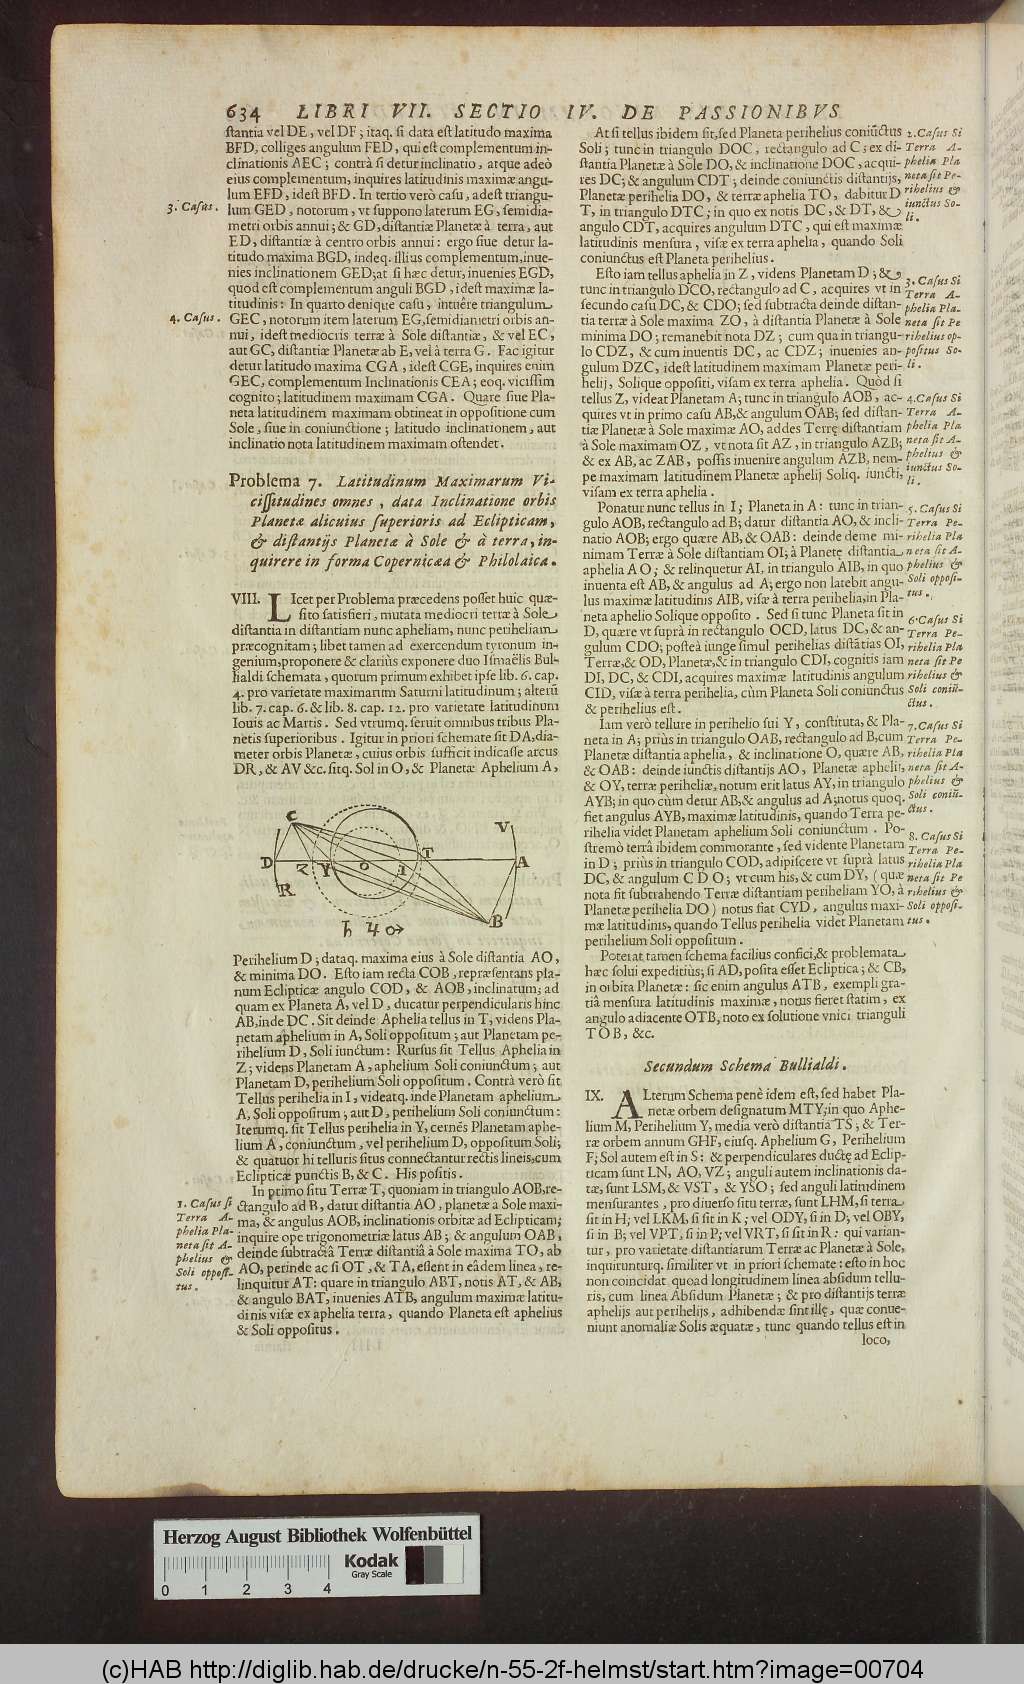 634 LIBRI VII. SECTIO IV. DE PASSIONIBVS
ſtantia vel DE, vel DF; itaq. ſi data eſt latitudo maxima
BFD, colliges angulum FED, qui eſt complementum in-
clinationis AEC; contrà ſi detur inclinatio, atque adeò
eius complementum, inquires latitudinis maximæ angu-
lum EFD, ideſt BFD. In tertio verò caſu, adeſt triangu-
3. Caſus.
lum GED, notorum, vt ſuppono laterum EG, ſemidia-
metri orbis annui; & GD, diſtantiæ Planetæ à terra, aut
ED, diſtantiæ à centro orbis annui: ergo ſiue detur la-
titudo maxima BGD, indeq. illius complementum, inue-
nies inclinationem GED; at ſi hæc detur, inuenies EGD,
quod eſt complementum anguli BGD, ideſt maximæ la-
titudinis: In quarto denique caſu, intuêre triangulum
4. Caſus.
GEC, notorum item laterum EG, ſemidiametri orbis an-
nui, ideſt mediocris terræ à Sole diſtantiæ, & vel EC,
aut GC, diſtantiæ Planetæ ab E, vel à terra G. Fac igitur
detur latitudo maxima CGA, ideſt CGE, inquires enim
GEC, complementum Inclinationis CEA; eoq. viciſſim
cognito; latitudinem maximam CGA. Quare ſiue Pla-
neta latitudinem maximam obtineat in oppoſitione cum
Sole, ſiue in coniunctione; latitudo inclinationem, aut
inclinatio nota latitudinem maximam oſtendet.
Problema 7. Latitudinum Maximarum Vi-
ciſſitudines omnes, data Inclinatione orbis
Planetæ alicuius ſuperioris ad Eclipticam,
& diſtantijs Planetæ à Sole & à terra, in-
quirere in forma Copernicæa & Philolaica.
VIII. LIcet per Problema præcedens poſſet huic quæ-
ſito ſatisfieri, mutata mediocri terræ à Sole
diſtantia in diſtantiam nunc apheliam, nunc periheliam
præcognitam; libet tamen ad exercendum tyronum in-
genium, proponere & clariùs exponere duo Iſmaëlis Bul-
lialdi ſchemata, quorum primum exhibet ipſe lib. 6. cap.
4. pro varietate maximarum Saturni latitudinum; alterũ
lib. 7. cap. 6. & lib. 8. cap. 12. pro varietate latitudinum
Iouis ac Martis. Sed vtrumq. ſeruit omnibus tribus Pla-
netis ſuperioribus. Igitur in priori ſchemate ſit DA, dia-
meter orbis Planetæ, cuius orbis ſufficit indicaſſe arcus
DR, & AV &c. ſitq. Sol in O, & Planetæ Aphelium A,
C V
D Z Y O I T A
R
B
♄ ♃ ♂
Perihelium D; dataq. maxima eius à Sole diſtantia AO,
& minima DO. Eſto iam recta COB, repræſentans pla-
num Eclipticæ angulo COD, & AOB, inclinatum; ad
quam ex Planeta A, vel D, ducatur perpendicularis hinc
AB, inde DC. Sit deinde Aphelia tellus in T, videns Pla-
netam aphelium in A, Soli oppoſitum; aut Planetam pe-
rihelium D, Soli iunctum: Rurſus ſit Tellus Aphelia in
Z; videns Planetam A, aphelium Soli coniunctum; aut
Planetam D, perihelium Soli oppoſitum. Contrà verò ſit
Tellus perihelia in I, videatq. inde Planetam aphelium
A, Soli oppoſitum; aut D, perihelium Soli coniunctum:
Iterumq. ſit Tellus perihelia in Y, cernẽs Planetam aphe-
lium A, coniunctum, vel perihelium D, oppoſitum Soli;
& quatuor hi telluris ſitus connectantur rectis lineis, cum
Eclipticæ punctis B, & C. His poſitis.
In primo ſitu Terræ T, quoniam in triangulo AOB, re-
1. Caſus ſi
Terra A-
phelia Pla-
neta ſit A-
phelius &
Soli oppoſi-
tus.
ctangulo ad B, datur diſtantia AO, planetæ a Sole maxi-
ma, & angulus AOB, inclinationis orbitæ ad Eclipticam;
inquire ope trigonometriæ latus AB; & angulum OAB,
deinde ſubtractâ Terræ diſtantiâ à Sole maxima TO, ab
AO, perinde ac ſi OT, & TA, eſſent in eâdem linea, re-
linquitur AT: quare in triangulo ABT, notis AT, & AB,
& angulo BAT, inuenies ATB, angulum maximæ latitu-
dinis viſæ ex aphelia terra, quando Planeta eſt aphelius
& Soli oppoſitus.
At ſi tellus ibidem ſit, ſed Planeta perihelius coniũctus
Soli; tunc in triangulo DOC, rectangulo ad C, ex di-
ſtantia Planetæ à Sole DO, & inclinatione DOC, acqui-
res DC; & angulum CDT; deinde coniunctis diſtantijs,
Planetæ perihelia DO, & terræ aphelia TO, dabitur D
T, in triangulo DTC; in quo ex notis DC, & DT, &
angulo CDT, acquires angulum DTC, qui eſt maximæ
latitudinis menſura, viſæ ex terra aphelia, quando Soli
coniunctus eſt Planeta perihelius.
2. Caſus Si
Terra A-
phelia Pla
neta ſit Pe-
rihelius &
iunctus So-
li.
Eſto iam tellus aphelia in Z, videns Planetam D; &
tunc in triangulo DCO, rectangulo ad C, acquires vt in
ſecundo caſu DC, & CDO; ſed ſubtracta deinde diſtan-
tia terræ à Sole maxima ZO, à diſtantia Planetæ à Sole
minima DO; remanebit nota DZ; cum qua in triangu-
lo CDZ, & cum inuentis DC, ac CDZ; inuenies an-
gulum DZC, ideſt latitudinem maximam Planetæ peri-
helij, Solique oppoſiti, viſam ex terra aphelia. Quòd ſi
3. Caſus Si
Terra A-
phelia Pla-
neta ſit Pe
rihelius op-
poſitus So-
li.
tellus Z, videat Planetam A; tunc in triangulo AOB, ac-
quires vt in primo caſu AB, & angulum OAB; ſed diſtan-
tiæ Planetæ à Sole maximæ AO, addes Terrę diſtantiam
à Sole maximam OZ, vt nota ſit AZ, in triangulo AZB;
& ex AB, ac ZAB, poſſis inuenire angulum AZB, nem-
pe maximam latitudinem Planetæ aphelij Soliq. iuncti,
viſam ex terra aphelia.
4. Caſus Si
Terra A-
phelia Pla
neta ſit A-
phelius &
iunctus So-
li.
Ponatur nunc tellus in I; Planeta in A: tunc in trian-
gulo AOB, rectangulo ad B; datur diſtantia AO, & incli-
natio AOB; ergo quære AB, & OAB: deinde deme mi-
nimam Terræ à Sole diſtantiam OI; à Planetę diſtantia
aphelia AO; & relinquetur AI, in triangulo AIB, in quo
inuenta eſt AB, & angulus ad A; ergo non latebit angu-
lus maximæ latitudinis AIB, viſæ à terra perihelia, in Pla-
neta aphelio Solique oppoſito. Sed ſi tunc Planeta ſit in
5. Caſus Si
Terra Pe-
rihelia Pla
neta ſit A-
phelius &
Soli oppoſi-
tus.
D, quære vt ſuprà in rectangulo OCD, latus DC, & an-
gulum CDO; poſteà iunge ſimul perihelias diſtãtias OI,
Terræ, & OD, Planetæ, & in triangulo CDI, cognitis iam
DI, DC, & CDI, acquires maximæ latitudinis angulum
CID, viſæ à terra perihelia, cùm Planeta Soli coniunctus
& perihelius eſt.
6. Caſus Si
Terra Pe-
rihelia Pla
neta ſit Pe
rihelius &
Soli coniũ-
ctus.
Iam verò tellure in perihelio ſui Y, conſtituta, & Pla-
neta in A; priùs in triangulo OAB, rectangulo ad B, cum
Planetæ diſtantia aphelia, & inclinatione O, quære AB,
& OAB: deinde iunctis diſtantijs AO, Planetæ aphelij,
& OY, terræ periheliæ, notum erit latus AY, in triangulo
AYB; in quo cùm detur AB, & angulus ad A; notus quoq.
fiet angulus AYB, maximæ latitudinis, quando Terra pe-
rihelia videt Planetam aphelium Soli coniunctum. Po-
7. Caſus Si
Terra Pe-
rihelia Pla
neta ſit A-
phelius &
Soli coniũ-
ctus.
ſtremò terrâ ibidem commorante, ſed vidente Planetam
in D; priùs in triangulo COD, adipiſcere vt ſuprà latus
DC, & angulum CDO; vt cum his, & cum DY, (quæ
nota fit ſubtrahendo Terræ diſtantiam periheliam YO, à
Planetæ perihelia DO) notus fiat CYD, angulus maxi-
mæ latitudinis, quando Tellus perihelia videt Planetam
perihelium Soli oppoſitum.
8. Caſus Si
Terra Pe-
rihelia Pla
neta ſit Pe
rihelius &
Soli oppoſi-
tus.
Poterat tamen ſchema facilius confici, & problemata
hæc ſolui expeditiùs; ſi AD, poſita eſſet Ecliptica; & CB,
in orbita Planetæ: ſic enim angulus ATB, exempli gra-
tiâ menſura latitudinis maximæ, notus fieret ſtatim, ex
angulo adiacente OTB, noto ex ſolutione vnici trianguli
TOB, &c.
Secundum Schema Bullialdi.
IX. ALterum Schema penè idem eſt, ſed habet Pla-
netæ orbem deſignatum MTY, in quo Aphe-
lium M, Perihelium Y, media verò diſtantia TS; & Ter-
ræ orbem annum GHF, eiuſq. Aphelium G, Perihelium
F; Sol autem eſt in S: & perpendiculares ductę ad Eclip-
ticam ſunt LN, AO, VZ; anguli autem inclinationis da-
tæ, ſunt LSM, & VST, & YSO; ſed anguli latitudinem
menſurantes, pro diuerſo ſitu terræ, ſunt LHM, ſi terra
ſit in H; vel LKM, ſi ſit in K; vel ODY, ſi in D; vel OBY,
ſi in B; vel VPT, ſi in P; vel VRT, ſi ſit in R: qui varian-
tur, pro varietate diſtantiarum Terræ ac Planetæ à Sole,
inquirunturq. ſimiliter vt in priori ſchemate: eſto in hoc
non coincidat quoad longitudinem linea abſidum tellu-
ris, cum linea Abſidum Planetæ; & pro diſtantijs terræ
aphelijs aut perihelijs, adhibendæ ſint illę, quæ conue-
niunt anomaliæ Solis æquatæ, tunc quando tellus eſt in
loco,
Herzog August Bibliothek Wolfenbüttel
0 1 2 3 4
Kodak
Gray Scale
(c)HAB http://diglib.hab.de/drucke/n-55-2f-helmst/start.htm?image=00704